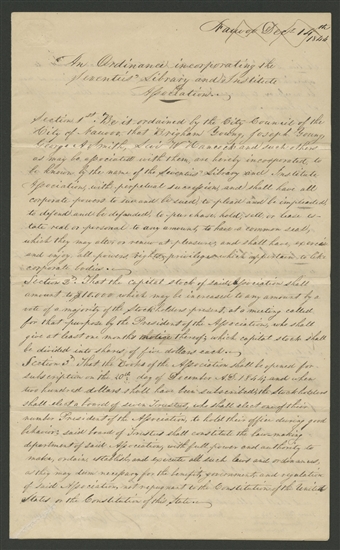 Nauvoo Dec. 14th
1844
An Ordinance incorporating the
Seventies' Library and Institute
Association.
Section 1st. Be it ordained by the City Council of the
City of Nauvoo, that Brigham Young, Joseph Young,
George A Smith, Levi W Hancock and such others
as may be associated with them, are hereby incorporated, to
be known by the name of the Seventies' Library and Institute
Association, with perpetual succession, and shall have all
corporate powers to sue and be sued; to plead and be impleaded,
to defend and be defended; to purchase, hold, sell or lease es-
tate real or personal to any amount; to have a common seal,
which they may alter or renew at pleasure; and shall have, exercise
and enjoy, all powers, rights, privileges which appertain to like
corporate bodies.
Section 2d. That the capital stock of said Association shall
amount to which may be increased to any amount by a
vote of a majority of the Stock holders present, at a meeting called
for that purpose by the President of the Association, who shall
give at least one months notice thereof; which capital stock shall
be divided into shares of five dollars each.
Section 3. That the Books of the Association shall be opened for
subscription on the day of December A.D. 1844, and when
two hundred dollars shall have been subscribed, the stockholders
shall elect a board of seven Trustees, who shall elect one of their
number President of the Association, to hold their office during good
behavior; said board of Trustees shall constitute the law making
department of said Association, with full power and authority to
make, ordain establish and execute all such laws and ordinances,
as they may deem necessary for the benefit, government, and regulation
of said Association, not repugnant to the Constitution of the United
States, or the Constitution of this State.